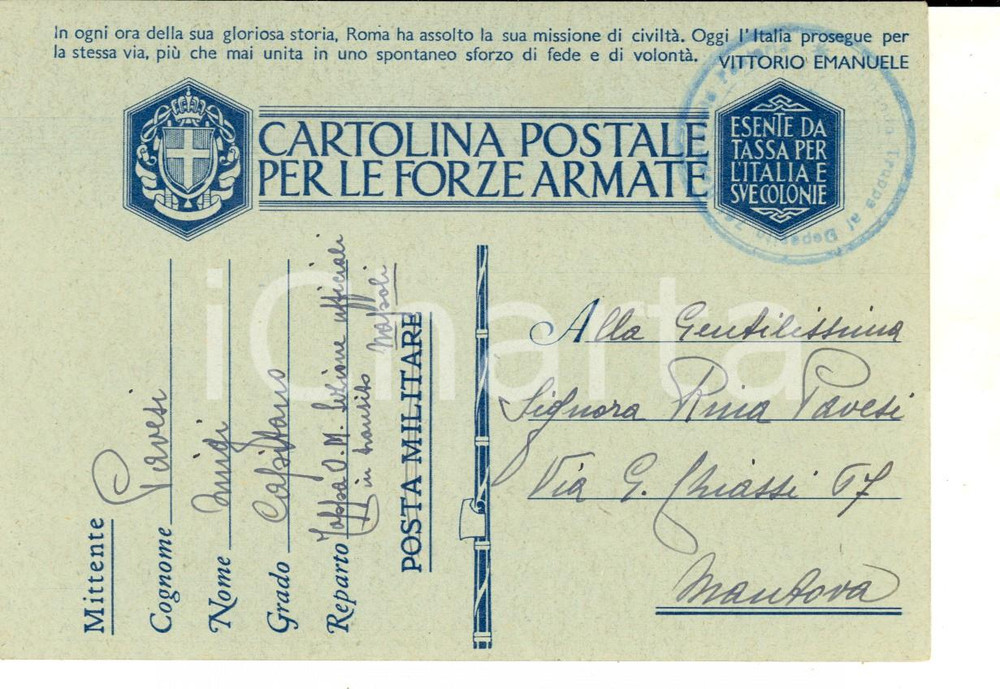 In ogni ora della sua gloriosa storia, Roma ha assolto la sua missione di civiltà. Oggi l'Italia prosegue per
la stessa via, più che mai unita in uno spontaneo sforzo di fede e di volontà.
VITTORIO EMANUELE
CARTOLINA POSTALE
PER LE FORZE ARMATE
ESENTE DA
TASSA PER
L'ITALIA E
SVE COLONIE
Truppa al Deposito
iCharta
Mittente
Cognome Pavesi
Nome Luigi
Grado Capitano
Reparto Tappa O.M. Sezione ufficiali
in transito Napoli
POSTA MILITARE
Alla Gentilissima
Signora Rina Pavesi
Via G. Chiassi 67
Mantova